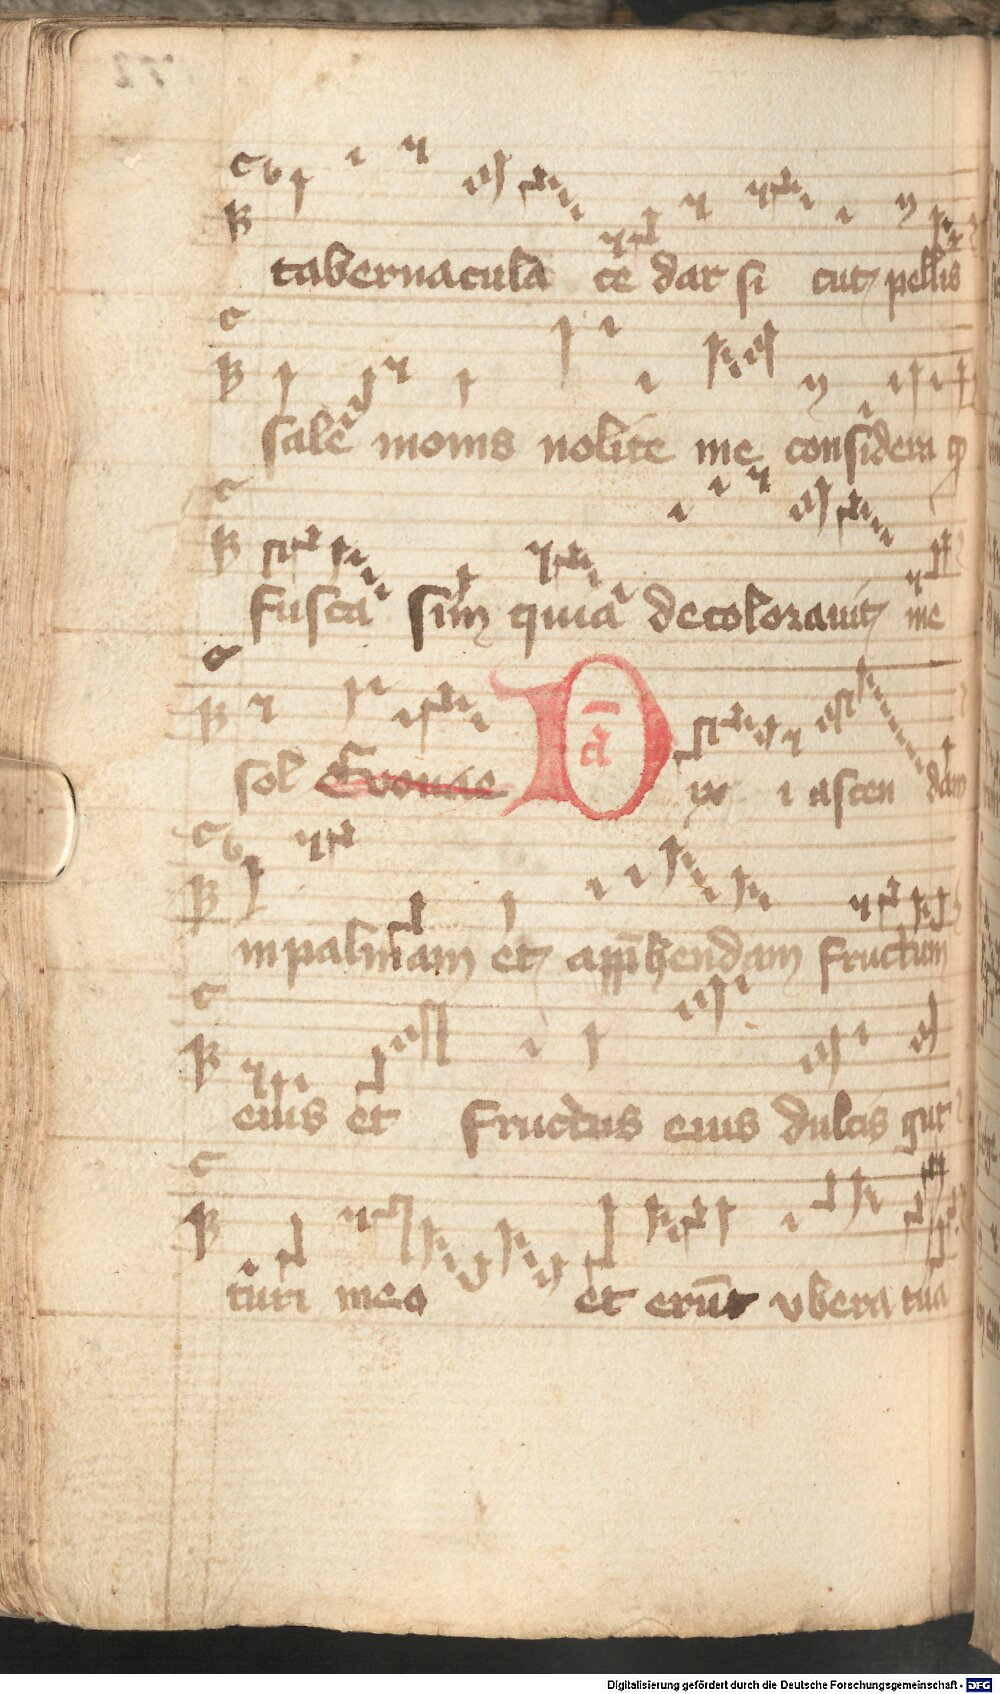 tabernacula ce dar si cut pellis
salē monis nolite me considera q
fusca sim quia decolorauit me
sol Evouae D ā ix i ascen dam
in palmam et app̄hendam fructum
eius et fructus eius dulcis gut
turi meo et erūt vbera tua
Digitalisierung gefördert durch die Deutsche Forschungsgemeinschaft - DFG